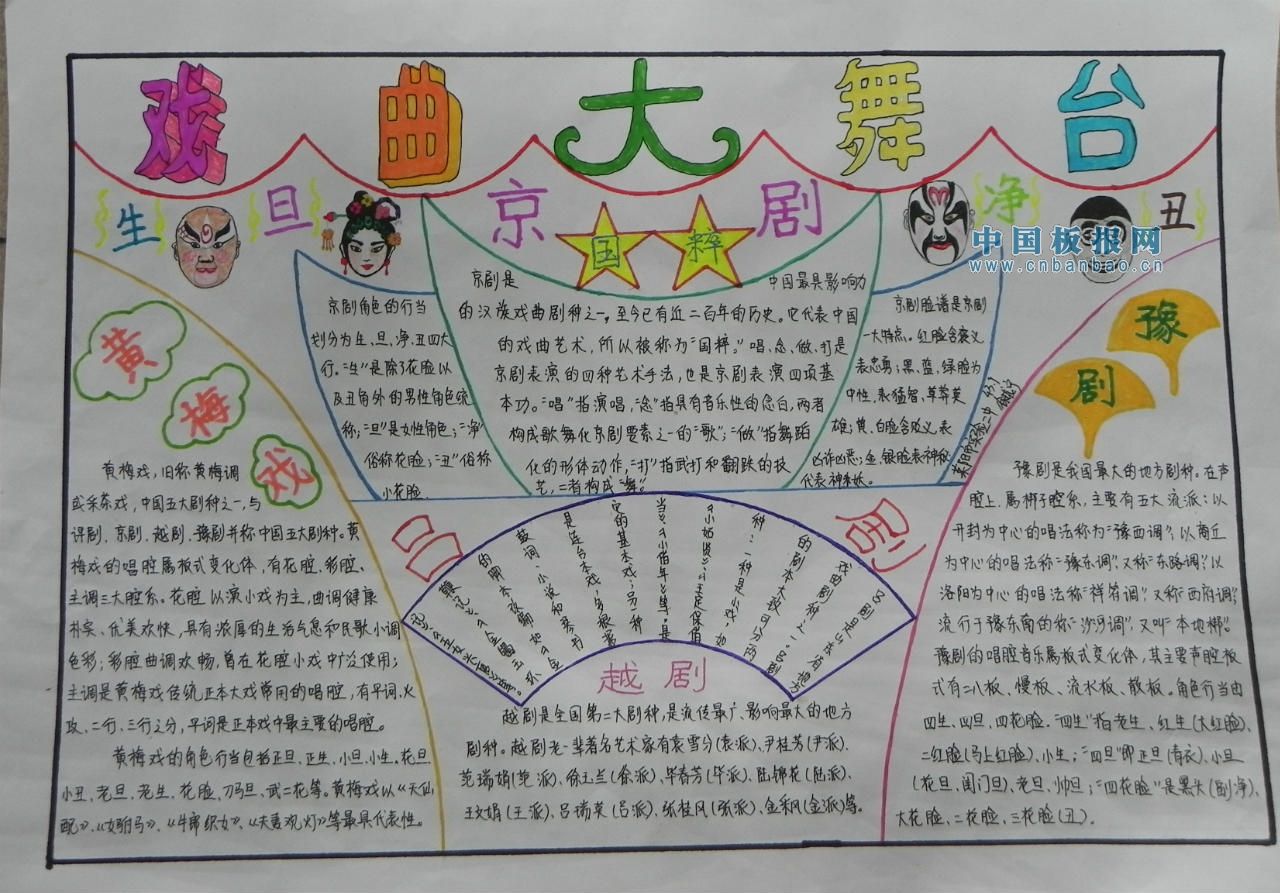 戏曲大舞台
生
旦
京剧
国粹
净
丑
中国板报网
www.cnbanbao.cn
京剧角色的行当
划分为生、旦、净、丑四大
行。“生”是除了花脸以
及丑角外的男性角色统
称；“旦”是女性角色；“净”
俗称花脸；“丑”俗称
小花脸
京剧是中国最具影响力
的汉族戏曲剧种之一，至今已有近二百年的历史。它代表中国
的戏曲艺术，所以被称为“国粹。”唱、念、做、打是
京剧表演的四种艺术手法，也是京剧表演四项基
本功。“唱”指演唱，“念”指具有音乐性的念白，两者
构成歌舞化京剧要素之一的“歌”；“做”指舞蹈
化的形体动作，“打”指武打和翻跌的技
艺，二者构成“舞”。
京剧脸谱是京剧
一大特点。红脸含褒义
表忠勇；黑、蓝、绿脸为
中性，表猛智、草莽英
雄；黄、白脸含贬义，表
凶诈凶恶；金、银脸表神秘
代表神来妖。
黄梅戏
黄梅戏，旧称黄梅调
或采茶戏，中国五大剧种之一，与
评剧、京剧、越剧、豫剧并称中国五大剧种。黄
梅戏的唱腔属板式变化体，有花腔、彩腔、
主调三大腔系。花腔以演小戏为主，曲调健康
朴实、优美欢快，具有浓厚的生活气息和民歌小调
色彩；彩腔曲调欢畅，曾在花腔小戏中广泛使用；
主调是黄梅戏传统正本大戏常用的唱腔，有平词、火
攻、二行、三行之分，平词是正本戏中最主要的唱腔。
黄梅戏的角色行当包括正旦、正生、小旦、小生、花旦、
小丑、老旦、老生、花脸、刀马旦、武二花等。黄梅戏以《天仙
配》、《女驸马》、《牛郎织女》、《夫妻观灯》等最具代表性。
吕剧
戏曲剧种之一，吕剧
的剧本大致可分为两
种：一种是小戏，如
《小姑贤》《王定保借
当》《小借年》等，是
它的基本戏；另一种
是连台本戏，多根据
鼓词、小说和琴书
的脚本改编，如《金
鞭记》《金镯玉环
记》《王天保》等。
越剧
越剧是全国第二大剧种，是流传最广、影响最大的地方
剧种。越剧老一辈著名艺术家有袁雪芬（袁派）、尹桂芳（尹派）、
范瑞娟（范派）、徐玉兰（徐派）、毕春芳（毕派）、陆锦花（陆派）、
王文娟（王派）、吕瑞英（吕派）、张桂凤（张派）、金采风（金派）等。
豫剧
豫剧是我国最大的地方剧种。在声
腔上，属梆子腔系，主要有五大流派：以
开封为中心的唱法称为“豫西调”，以商丘
为中心的唱法称“豫东调”，又称“东路调”，以
洛阳为中心的唱法称“祥符调”，又称“西府调”，
流行于豫东南的称“沙河调”，又叫“本地梆”。
豫剧的唱腔音乐属板式变化体，其主要声腔板
式有二八板、慢板、流水板、散板。角色行当由
四生、四旦、四花脸。“四生”指老生、红生（大红脸）、
二红脸（马上红脸）、小生；“四旦”即正旦（青衣）、小旦
（花旦、闺门旦）、老旦、帅旦；“四花脸”是黑头（副净）、
大花脸、二花脸、三花脸（丑）。